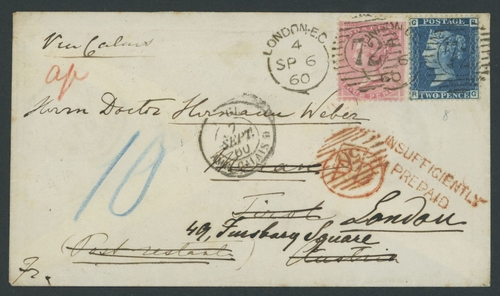 Via Calais
ap
LONDON·E.C
4
SP 6
60
72
POSTAGE
TWO-PENCE
Herrn Doctor Hermann Weber
7
SEPT.
60
CALAIS
10
INSUFFICIENTLY
PREPAID
Meran
Tirol London
49, Finsbury Square
Post restant
Austria
Fr.
8